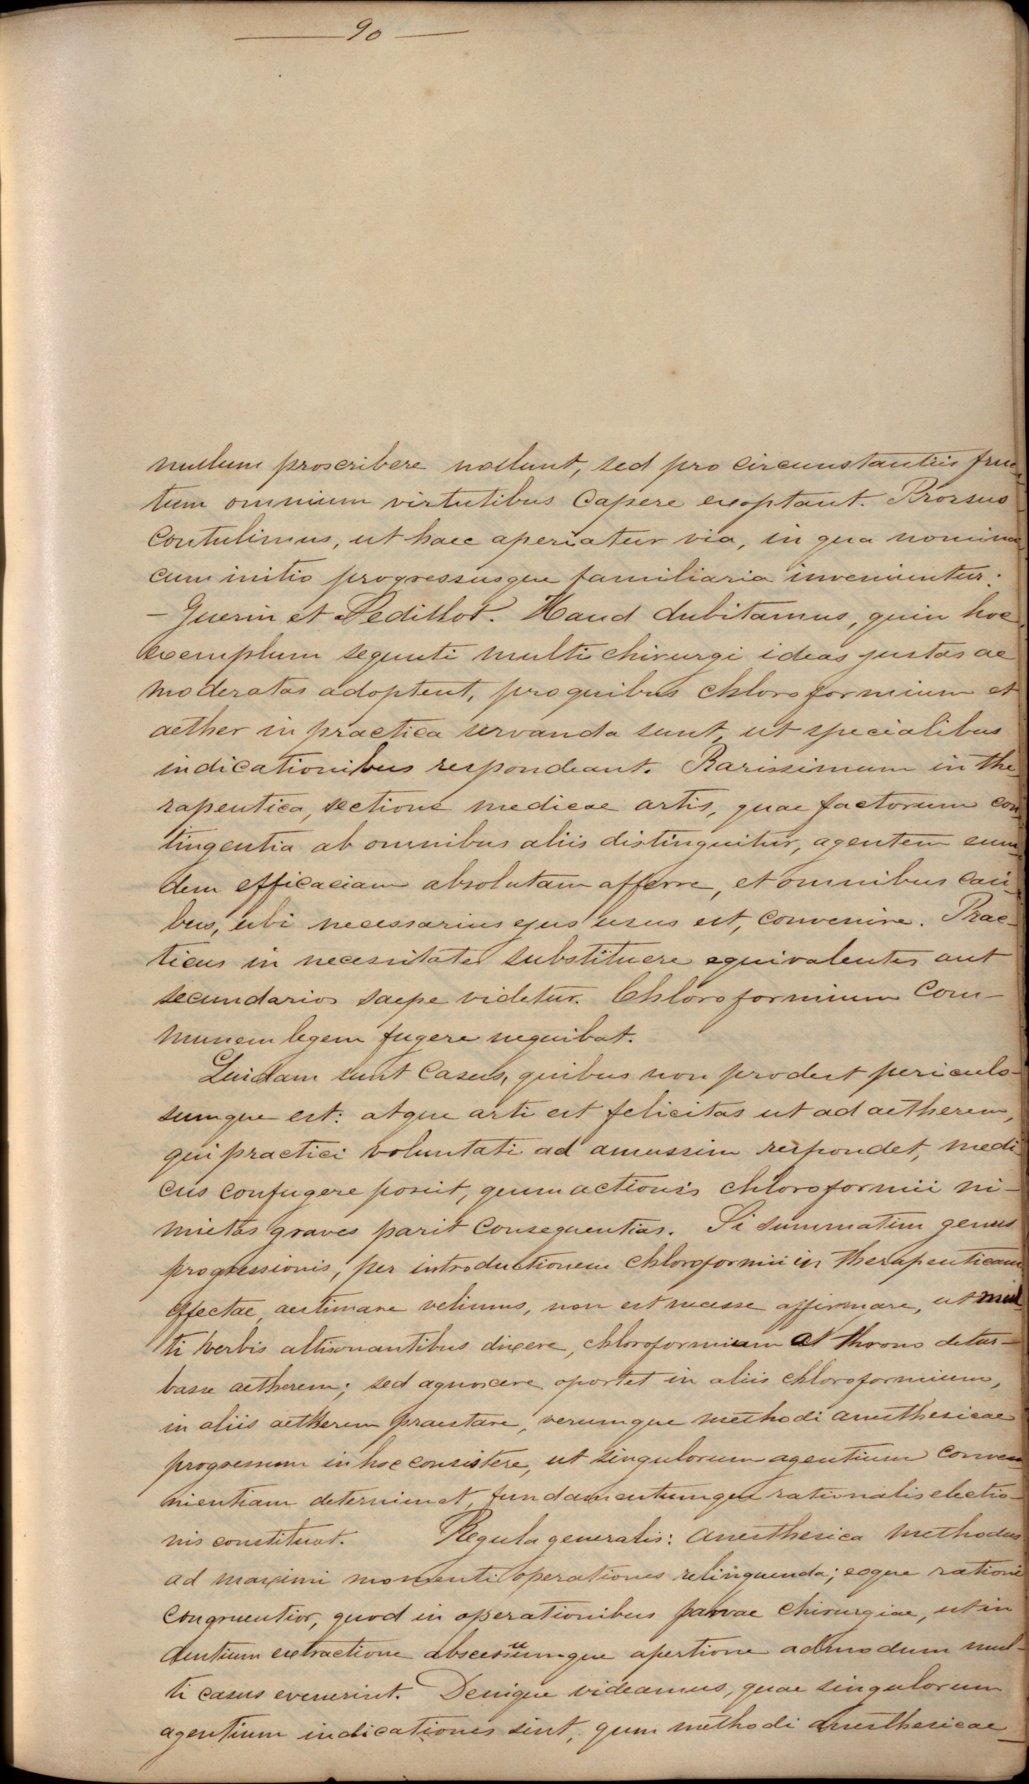 90
nullum proscribere nollunt, sed pro circumstantiis fruc-
tum omnium virtutibus capere exoptant. Prorsus
contulimus, ut haec aperiatur via, in qua nomina
cum initio progressusque familiaria invenientur:
– Guerin et Sedillot. Haud dubitamus, quin hoc
exemplum sequuti multi chirurgi ideas justas ac
moderatas adoptent, pro quibus chloroformium et
aether in practica servanda sunt, ut specialibus
indicationibus respondeant. Rarissimum in the
rapeutica, sectione medicae artis, quae factorum con
tingentia ab omnibus aliis distinguitur, agentem eum-
dem efficaciam absolutam afferre, et omnibus casi-
bus, ubi necessarius ejus usus est, convenire. Prac-
ticus in necessitate substituere equivalentes aut
secundarios saepe videtur. Chloroformium com-
munem legem fugere nequibat.
Quidam sunt casus, quibus non prodest periculo-
sumque est: atque arti est felicitas ut ad aetherem,
qui practici voluntati ad amussim respondet, medi
cus confugere possit, quum actionis chloroformii ni-
mietas graves parit consequentias. Si summatim genus
progressionis, per introductionem chloroformii in therapeuticam
effectae, aestimare velimus, non est necesse affirmare, ut mul-
ti verbis altisonantibus dixere, chloroformium at throno detur-
basse aetherem; sed agnoscere oportet in aliis chloroformium,
in aliis aetherem praestare, verumque methodi anesthesicae
progressum in hoc consistere, ut singulorum agentium conve-
nientiam determinet, fundamentumque rationalis electio-
nis constituat. Regula generalis: anesthesica methodus
ad maximi momenti operationes relinquenda; eoque rationi
congruentior, quod in operationibus parvae chirurgiae, ut in
dentium extractione abscessuumque apertione admodum mul-
ti casus evenerint. Denique videamus, quae singulorum
agentium indicationes sint, qum methodi anesthesicae